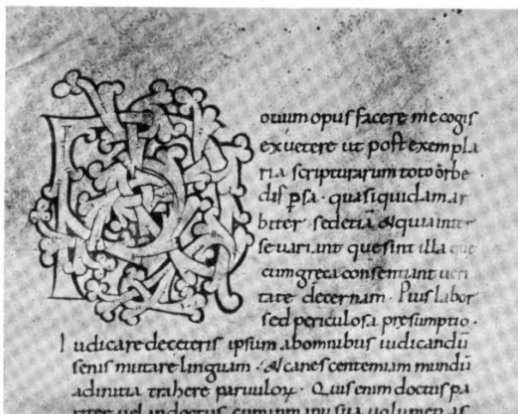 N
ouum opus facere me cogis
ex uetere ut post exempla
ria scripturarum toto orbe
dispsa · quasi quidam ar
biter sedeā & quia inter
se uariant que sint illa que
cum greca consentiant ueri
tate decernam · Pius labor
sed periculosa presumptio ·
Iudicare de ceteris ipsum ab omnibus iudicandū
senis mutare linguam · & canescentem iam mundū
ad initia trahere paruuloꝝ · Quis enim doctus pa
riter uel indoctus cum in manus uolumen as